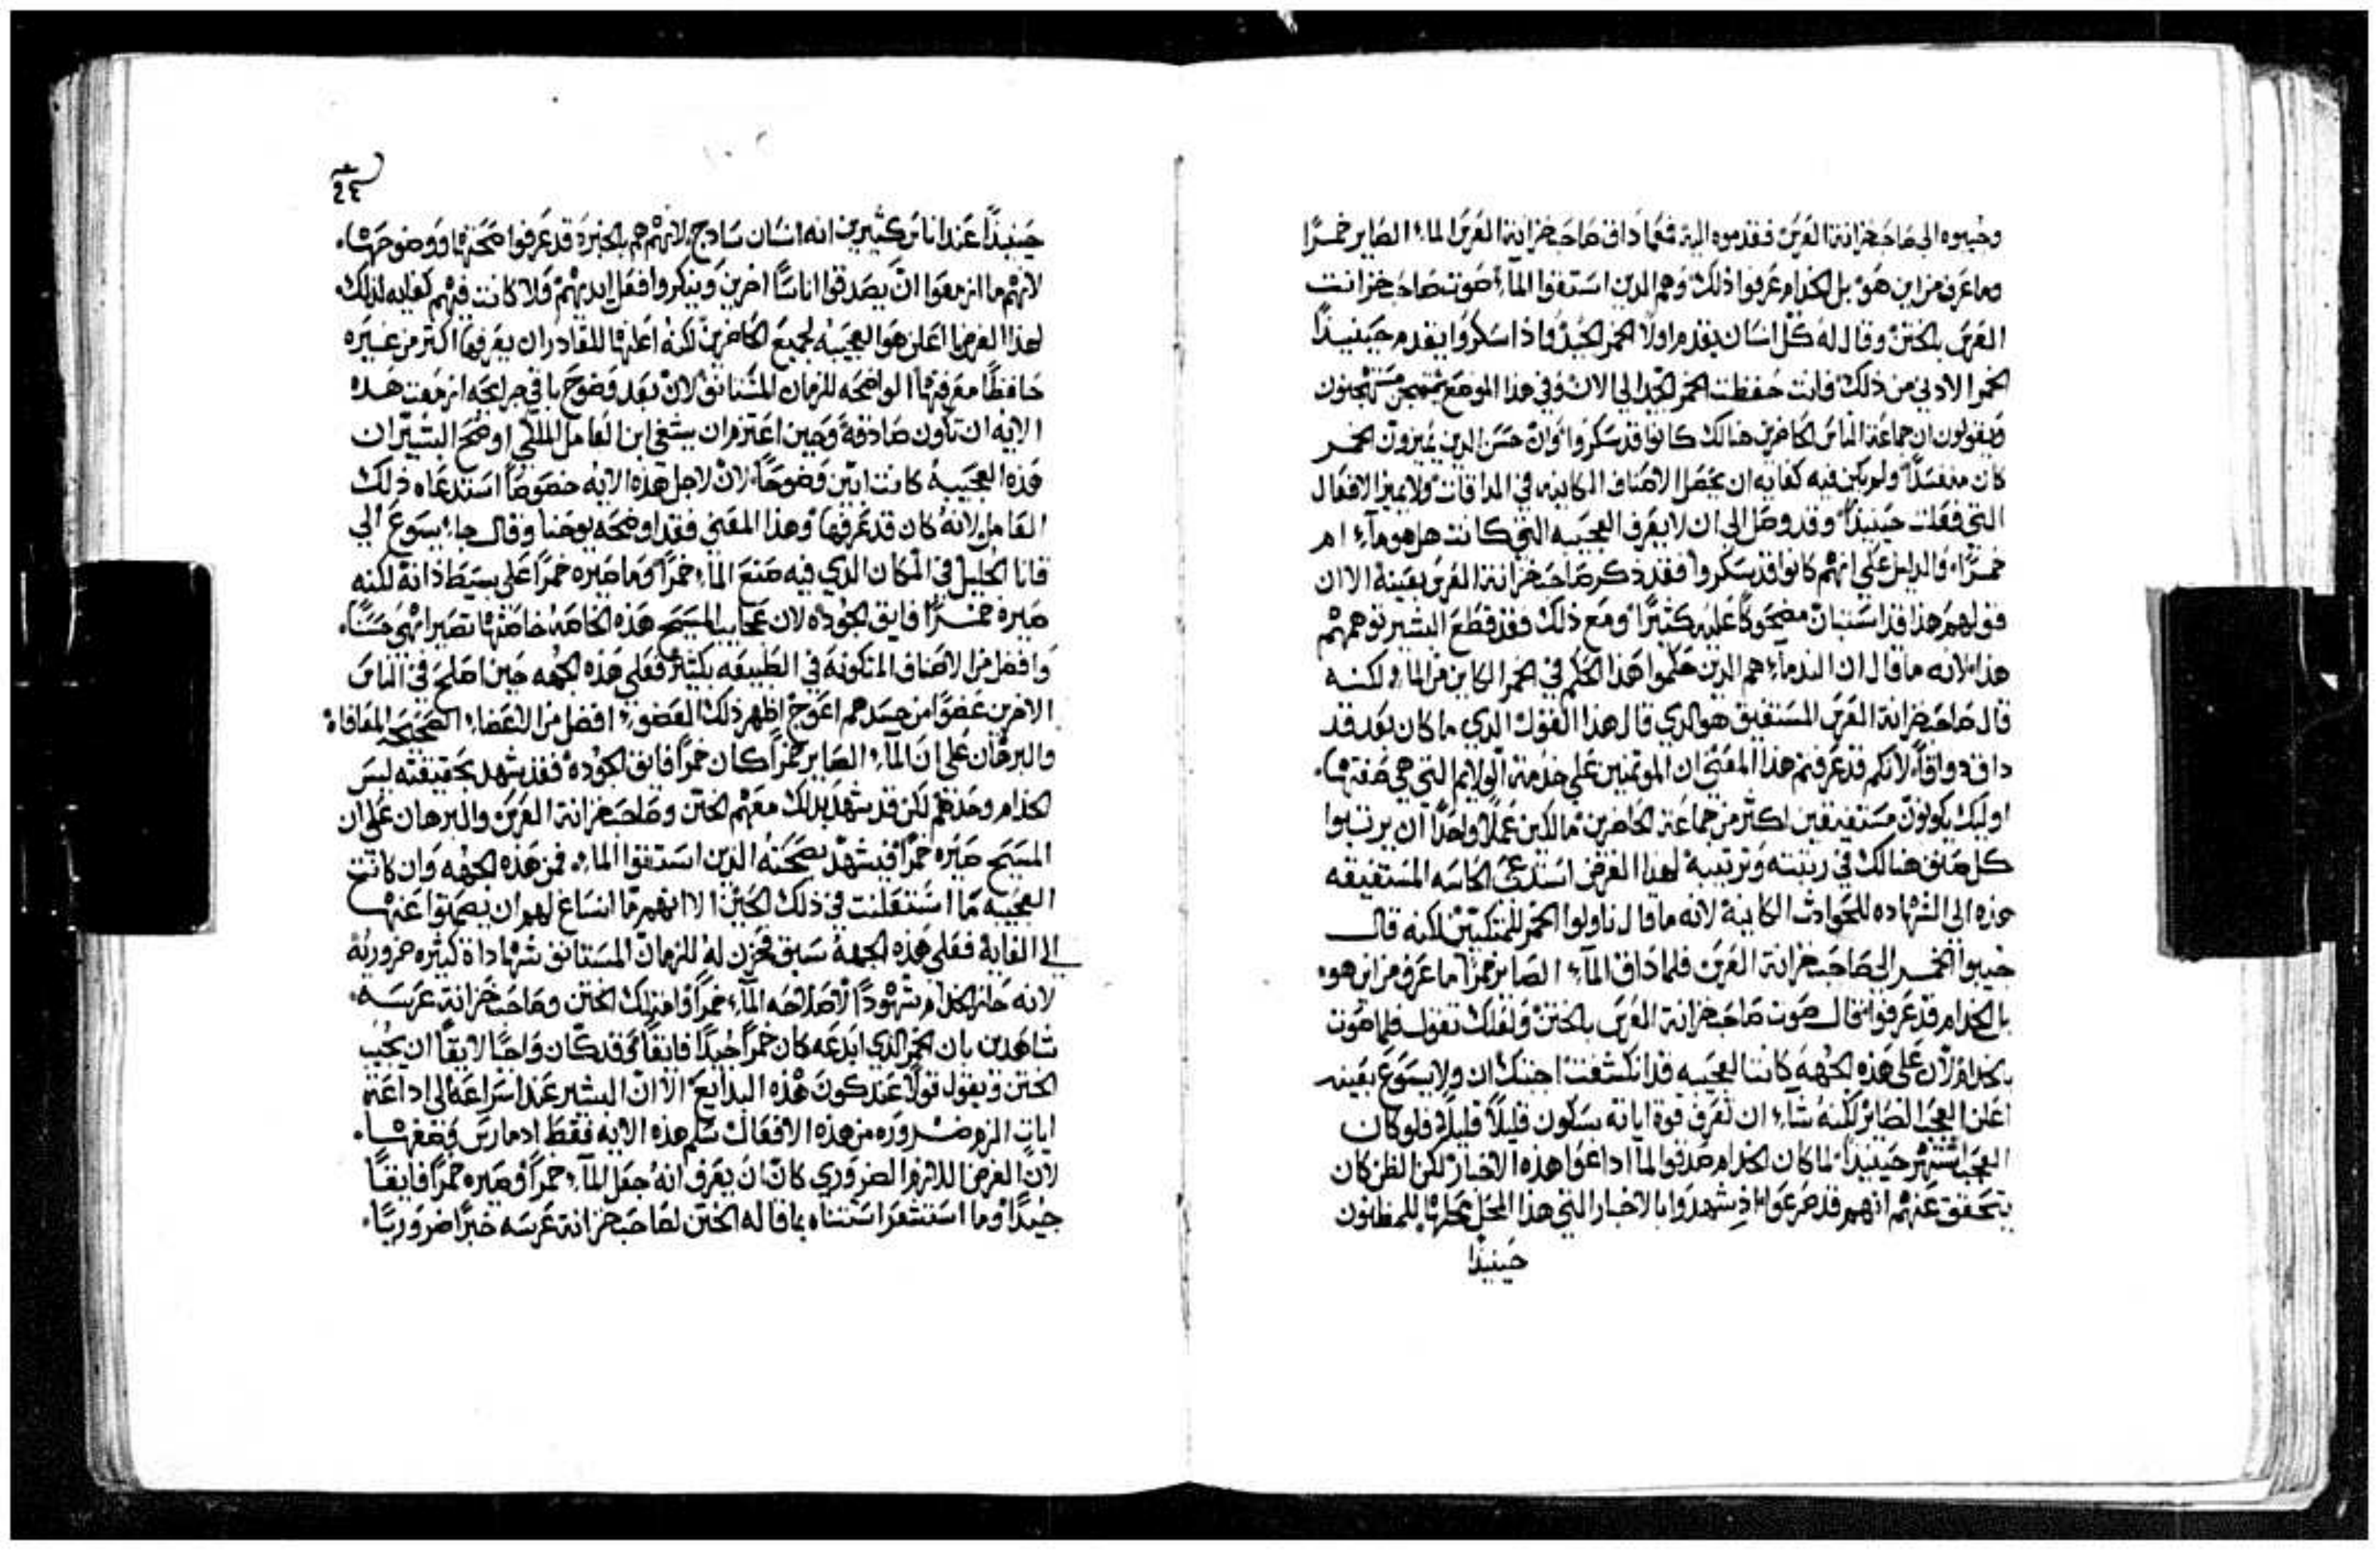 وجيبوه الى صاحب خزانة العرس فقدموه اليه فلما ذاق صاحب خزانة العرس الماء الصاير خمرًا
وما عرف من اين هو بل الخدام عرفوا ذلك وهم الدين استقوا الماء صوت صاحب خزانت
العرس بالختن وقال له كل انسان يقدم اولًا الخمر الجيد واذا سكروا يقدم حينيدًا
الخمر الادني من ذلك وانت حفظت الخمر الجيد الي الان وفي هذا الموضع مستهجنون
ويقولون ان جماعة الناس الحاضرين هنالك كانوا قد سكروا وان حسن الدين يميزون الخمر
كان منفسدًا ولم يكن فيه كفايه ان يحصل الاصناف الكاينه في المداقات ولا يميز الافعال
التي فعلت حينيدًا وقد وصل الى ان لا يعرف العجيبه التي كانت هل هو ماء ام
خمرًا والدليل علي انهم كانوا قد سكروا فقد ذكر صاحب خزانة العرس بعينه الا ان
قولهم هذا قد استبان مضحوكًا عليه كثيرًا ومع ذلك فقد قطع البشير توهمهم
هذا لانه ما قال ان الندماء هم الدين حكموا هذا الحكم في الخمر الكاين من الماء ولكنه
قال صاحب خزانة العرس المستفيق هو الدي قال هذا القول الدي ما كان بعد قد
داق دواقًا لانكم قد عرفتم هذا المعني ان الموتمنين علي خدمة الولايم التي هي صفتها
اوليك يكونون مستفيقين اكثر من جماعة الحاضرين مالكين عملًا واحدًا ان يرتبوا
كل صنف هنالك في رتبته وترتيبه لهذا الغرض استدعى الحاسه المستفيقه
هذه الي الشهاده للحوادث الكاينة لانه ما قال ناولوا الخمر للمتكيين لكنه قال
جيبوا الخمر الى صاحب خزانة العرس فلما ذاق الماء الصاير خمرًا ما عرف من اين هو
بل الخدام قد عرفوا فقال صوت صاحب خزانة العرس بالختن ولعلك تقول فلما صوت
بالخدام لان على هذه الجهة كانت العجيبه قد انكشفت اجبتك ان ولا يسوع بعينه
اعلن العجب الصاير لكنه شاء ان تعرف قوة اياته بسكون قليلًا قليلًا فلو كان
العجب اشتهر حينيدًا لما كان الخدام صدقوا لما اداعوا هذه الاخبار لكن الظن كان
يتحقق عنهم انهم قد صرعوا اذ شهدوا بالاخبار التي هذا المحل محلها للمظنون
حينيدًا
٢٤
حينيذًا عند اناس كثيرين انه انسان سادج لانهم هم بالخبرة قد عرفوا صحتها ووضوحها
لانهم ما ازمعوا ان يصدقوا اناسًا اخرين وينكروا افعل ايديهم ولا كانت فيهم كفايه لذلك
لهذا الغرض ما اعلن هو العجيبه لجميع الحاضرين لكنه اعلنها للقادر ان يعرفها اكتر من غيره
حافظًا معرفتها الواضحه للزمان المستانق لان بعد وضوح باقي جرايحه ازمعت هذه
الايه ان تكون صادقة وحين اعتزم ان يشفي ابن العامل الملكي اوضح البشير ان
هذه العجيبة كانت ابين وضوحًا لان لاجل هذه الايه خصوصًا استدعاه ذلك
العامل لانه كان قد عرفها وهذا المعني فقد اوضحه يوحنا وقال جاء يسوع الي
قانا الجليل في المكان الذي فيه صنع الماء خمرًا وما صيره خمرًا على بسيط ذاته لكنه
صيره خمرًا فايق الجوده لان عجايب المسيح هذه الخاصه خاصتها تصير ابهي حسنًا
وافضل من الاصناف المتكونة في الطبيعه بكثير فعلي هذه الجهه حين اصلح في الناس
الاخرين عضوًا من جسدهم اعوج اظهر ذلك العضو افضل من الاعضاء الصحيحه المعافاه
والبرهان علي ان الماء الصاير خمرًا كان خمرًا فايق الجوده فقد شهد بحقيقته ليس
الخدام وحدهم لكن قد شهد بذلك معهم الختن وصاحب خزانة العرس والبرهان علي ان
المسيح صيره خمرًا فيشهد بصحته الذين استقوا الماء فمن هذه الجهه وان كانت
العجيبه ما اشتعلنت في ذلك الحين الا انهم ما انساغ لهم ان يصمتوا عنها
الي الغاية فعلي هذه الجهة سبق فخزن له للزمان المستانق شهاداة كثيره ضرورية
لانه حاز الخدام شهودًا لاصلاحه الماء خمرًا وامتلك الختن وصاحب خزانة عرسه
شاهدين بان الخمر الذي ابدعه كان خمرًا جيدًا فايقًا وقد كان واجبًا لايقًا ان يجيب
الختن ويقول قولًا عند كون هذه البدايع الا ان البشير عند اسراعه الى اداعة
ايات الزم ضروره من هذه الافعال سلم هذه الايه فقط اد مارس وصفها
لان الغرض اللازم الضروري كان ان يعرف انه جعل الماء خمرًا وصيره خمرًا فايقًا
جيدًا وما استشعر استثناه بما قاله الختن لصاحب خزانة عرسه خبرًا ضروريًا